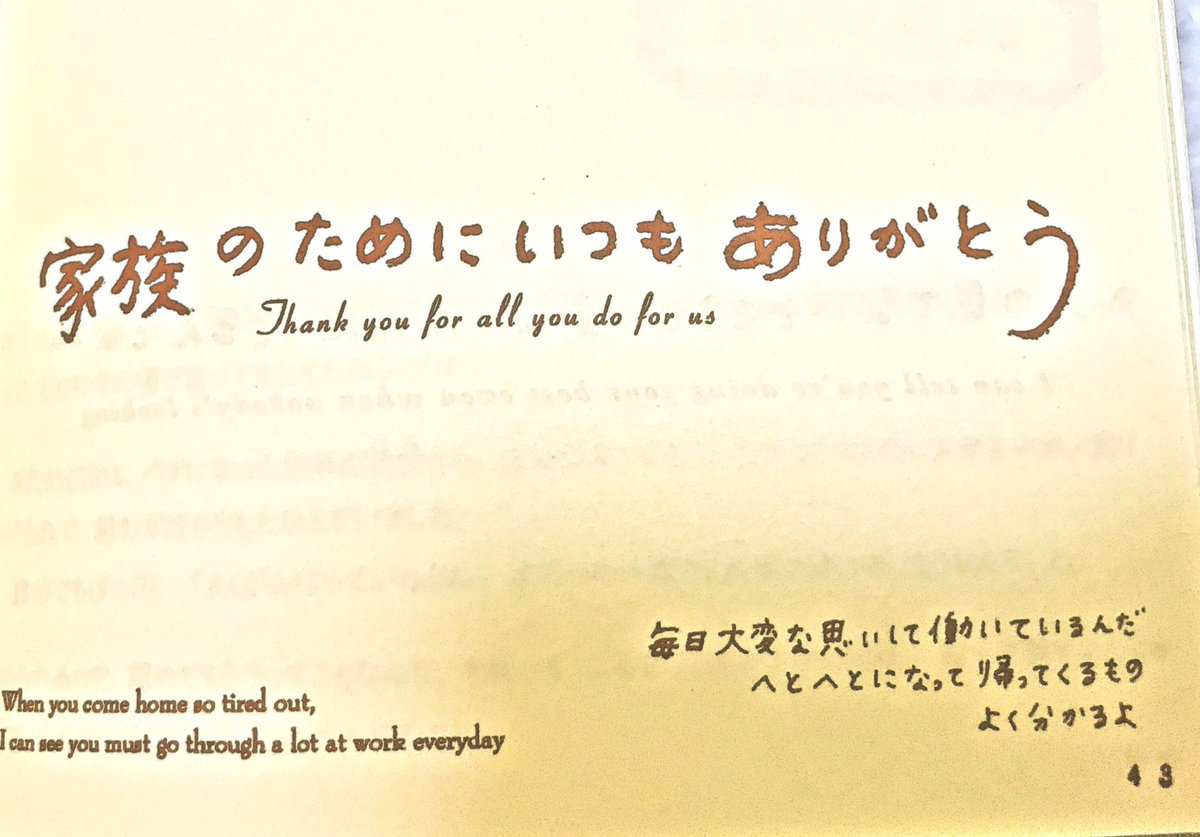 家族のためにいつもありがとう
Thank you for all you do for us
毎日大変な思いして働いているんだ
へとへとになって帰ってくるもの
よく分かるよ
When you come home so tired out,
I can see you must go through a lot at work everyday
43